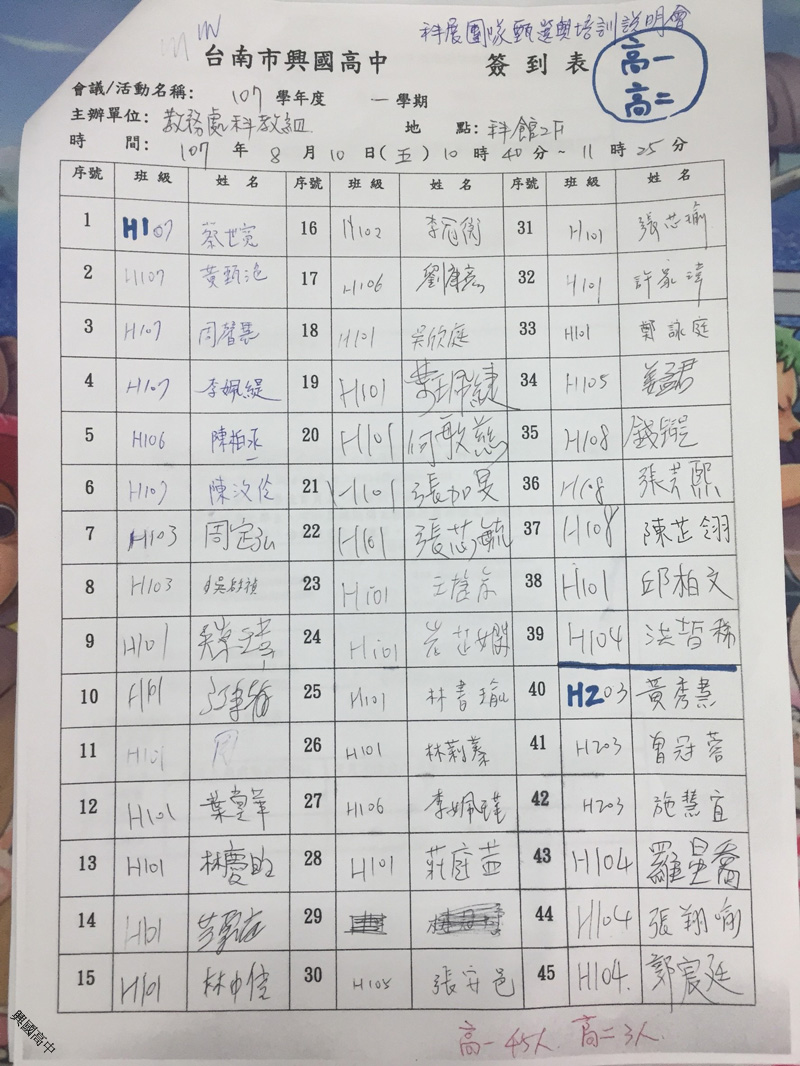 科展團隊甄選與培訓說明會
台南市興國高中 簽到表
高一
高二
會議/活動名稱: 107 學年度 一 學期
主辦單位: 教務處科教組 地 點: 科館2F
時 間: 107 年 8 月 10 日(五) 10 時 40 分 ~ 11 時 25 分
序號 班級 姓名 序號 班級 姓名 序號 班級 姓名
1 H107 蔡世寬 16 H102 李冠衡 31 H101 張芯瑜
2 H107 黃頤滄 17 H106 劉康亮 32 H101 許家瑋
3 H107 周馨慧 18 H101 吳欣庭 33 H101 鄭詠庭
4 H107 李姵緹 19 H101 34 H105
5 H106 陳柏丞 20 H101 何敏慈 35 H108
6 H107 陳汶伶 21 H101 張加旻 36 H108
7 H103 周定弘 22 H101 張芯毓 37 H108 陳芷翎
8 H103 23 H101 38 H101 邱柏文
9 H101 24 H101 39 H104
10 H101 25 H101 林書瑜 40 H203 黃秀慧
11 H101 周 26 H101 林莉蓁 41 H203 曾冠蓉
12 H101 27 H106 李姵瑾 42 H203 施慧宜
13 H101 28 H101 莊庭 43 H104 羅星喬
14 H101 29 44 H104 張翔喻
15 H101 30 H105 張安邑 45 H104. 郭宸廷
高一 45人. 高二 3人.
興國高中